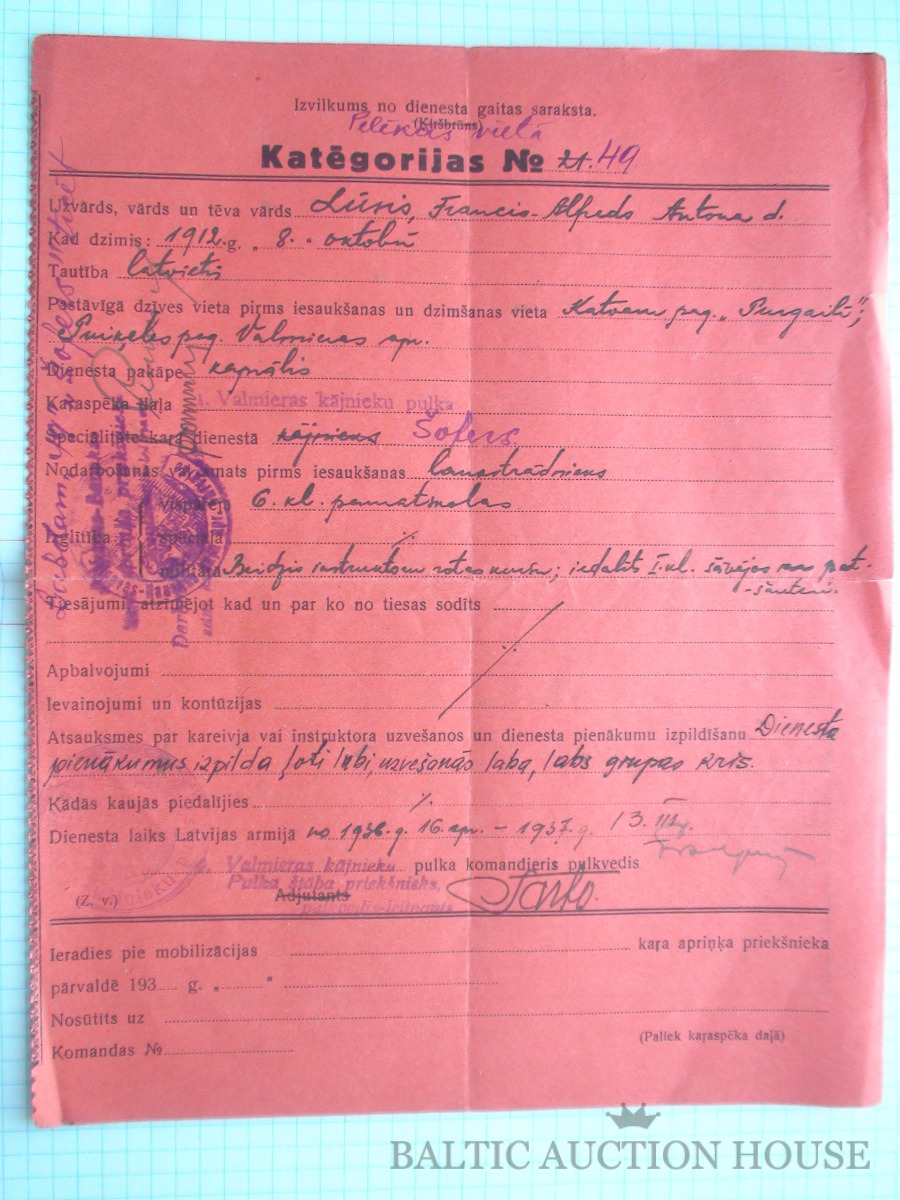 Izvilkums no dienesta gaitas saraksta.
(Ķiršbrūns)
Pelēkās vietā
Katēgorijas № 21. 49
Uzvārds, vārds un tēva vārds Lūsis, Francis-Alfreds Antona d.
Kad dzimis: 1912. g. „ 8. " oktobrī
Tautība latvietis
Pastāvīgā dzīves vieta pirms iesaukšanas un dzimšanas vieta Katvaru pag. „Purgaiļi";
Puiķeles pag. Valmieras apr.
Dienesta pakāpe kaprālis
Kaŗaspēka daļa Valmieras kājnieku pulka
Speciālitāte kaŗa dienestā kājnieks Šofers
Nodarbošanās amats pirms iesaukšanas laukstrādnieks
Izglītība
vispārējā 6. kl. pamatskolas
speciālā ٪.
militārā Beidzis instruktoru rotas kursu; iedalīts I. kl. šāvējos
Tiesājumi, atzīmējot kad un par ko no tiesas sodīts
Apbalvojumi
Ievainojumi un kontūzijas
Atsauksmes par kareivja vai instruktora uzvešanos un dienesta pienākumu izpildīšanu Dienesta
pienākumus izpilda ļoti labi, uzvešanās laba, labs grupas kr-is.
Kādās kaujās piedalījies ٪.
Dienesta laiks Latvijas armijā no 1936. g. 16. apr. – 1937. g. 13. III
Valmieras kājnieku pulka komandieris pulkvedis
Pulka štāba priekšnieks,
(Z. v.) Adjutants
pulkvedis-leitnants
Ieradies pie mobilizācijas kaŗa apriņķa priekšnieka
pārvaldē 193 g. „ "
Nosūtīts uz
Komandas №
(Paliek kaŗaspēka daļā)
BALTIC AUCTION HOUSE